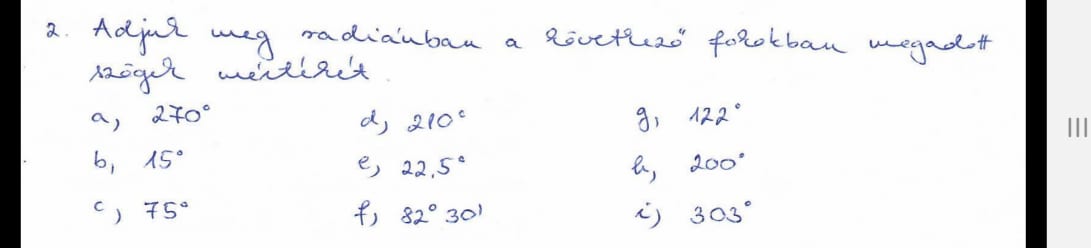 2. Adjuk meg radiánban a következő fokokban megadott
szögek mértékét.
a, 270° d, 210° g, 122°
b, 15° e, 22,5° h, 200°
c, 75° f, 82° 30' i, 303°